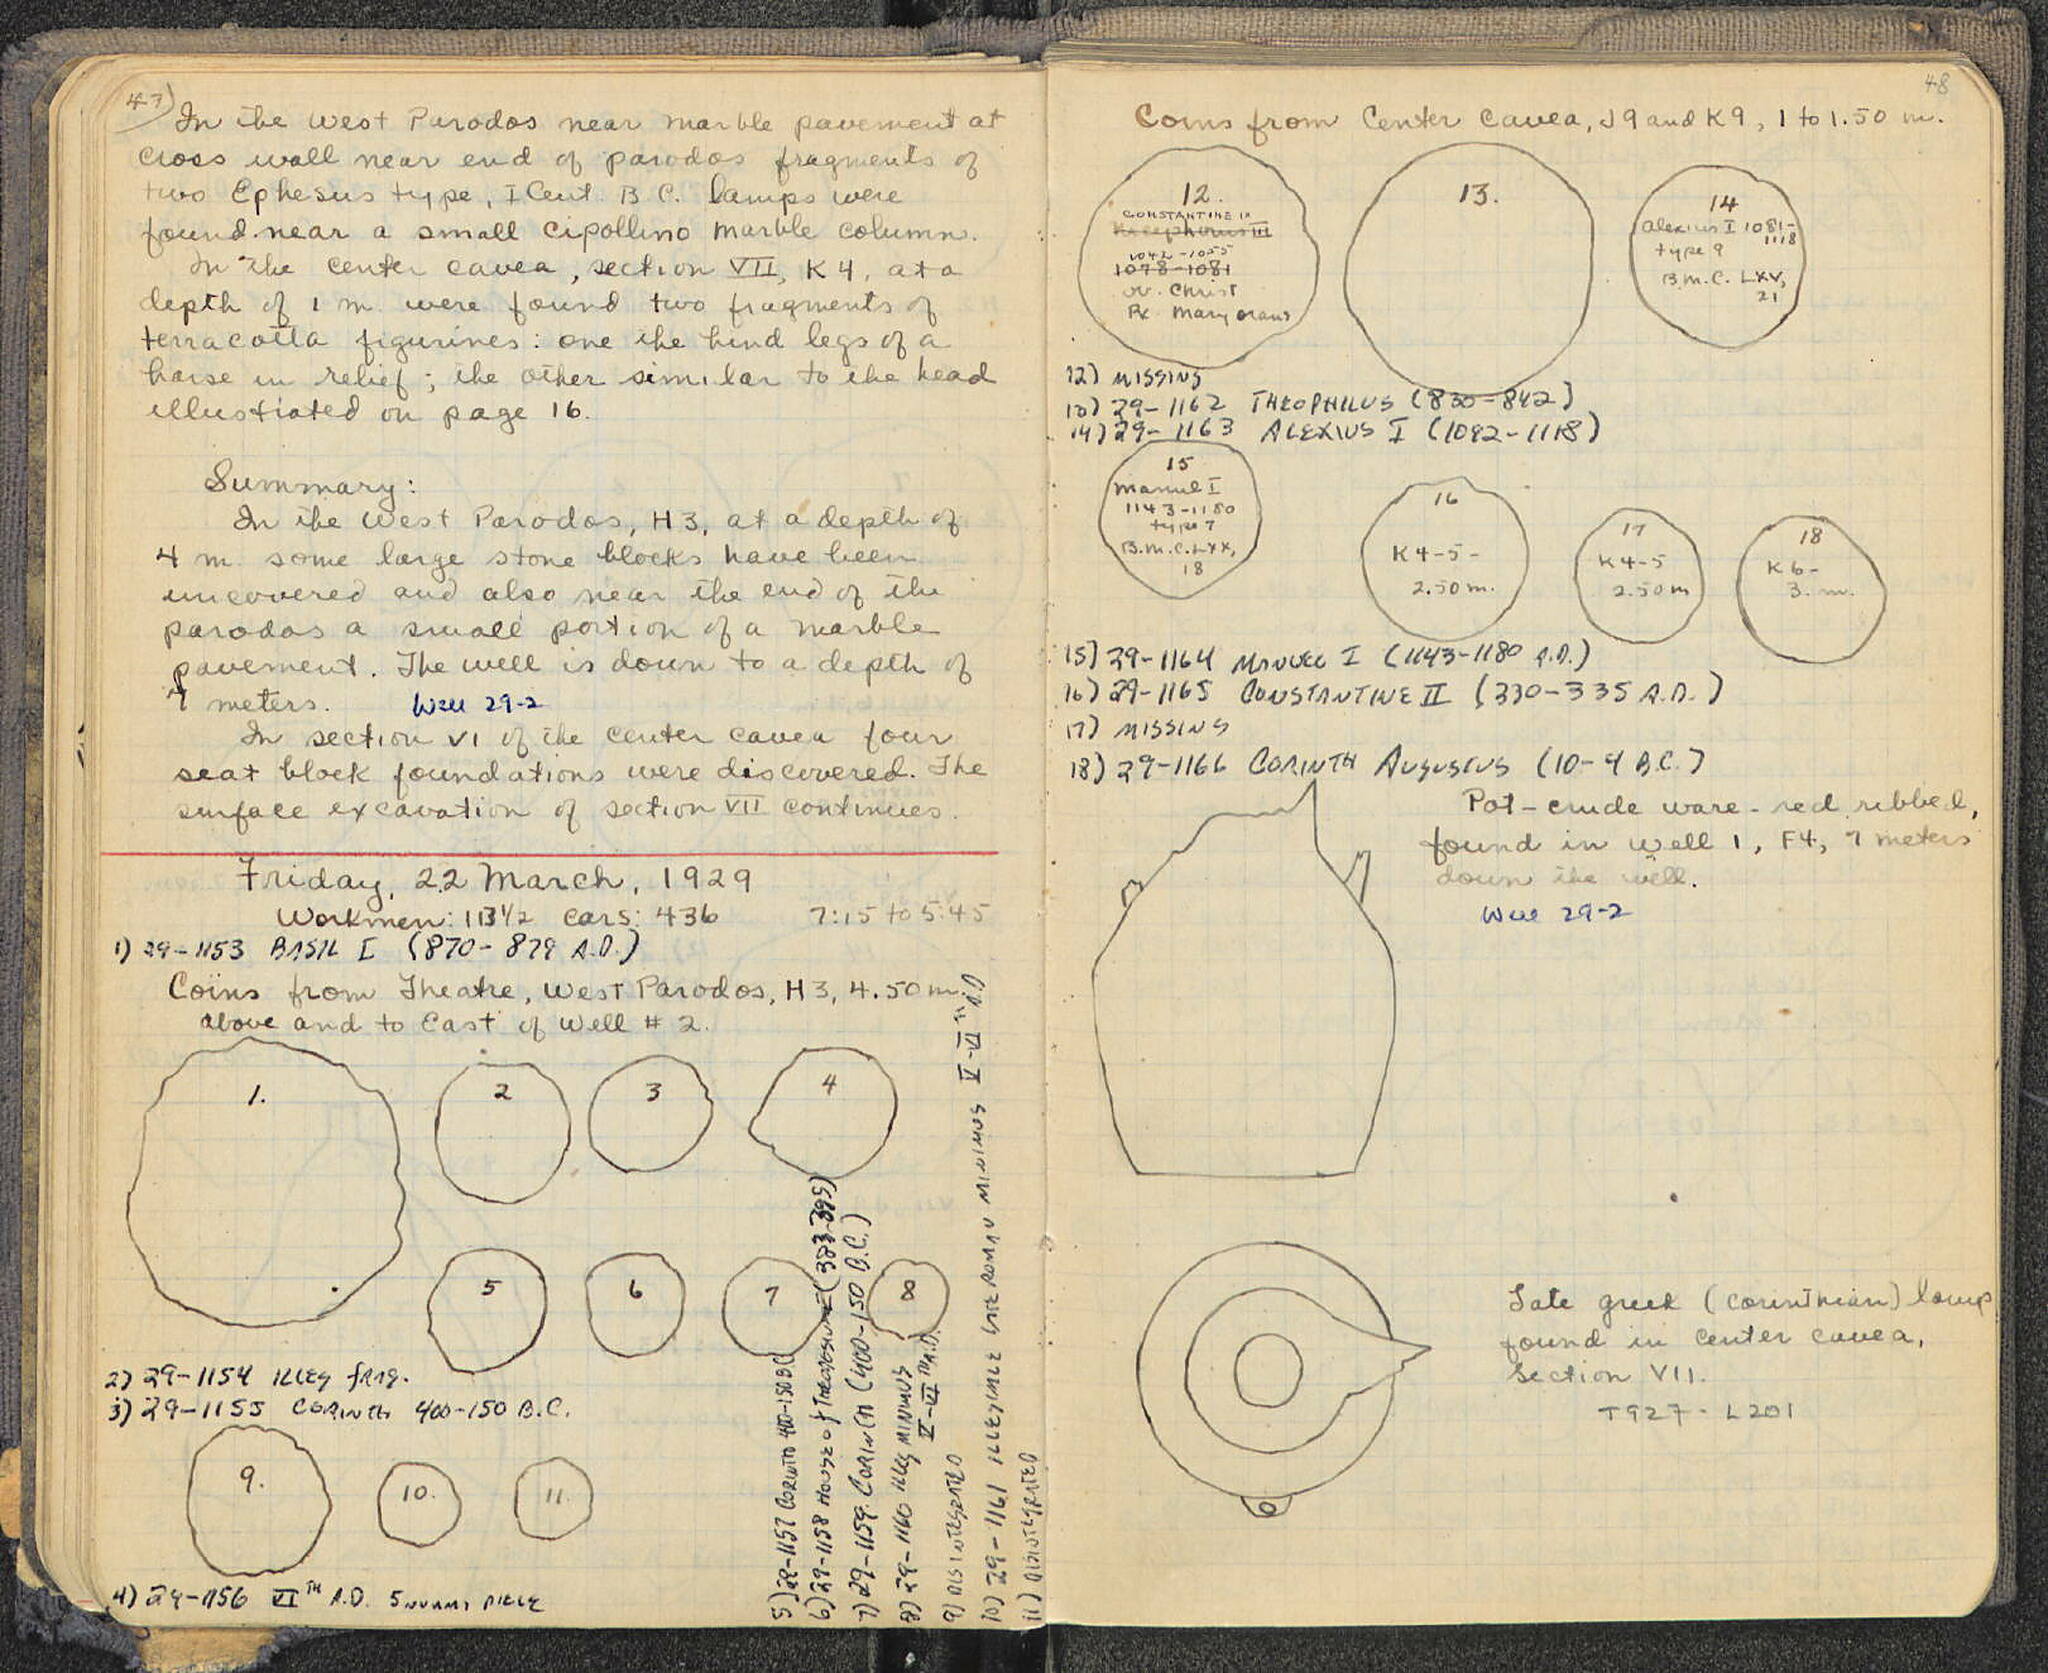 47)
In the West Parodos near marble pavement at
cross wall near end of parodos fragments of
two Ephesus type, I Cent. B C. lamps were
found near a small cipollino marble column.
In the center cavea, section VII, K 4, at a
depth of 1 m. were found two fragments of
terracotta figurines: one the hind legs of a
horse in relief; the other similar to the head
illustrated on page 16.
Summary:
In the West Parodos, H 3, at a depth of
4 m. some large stone blocks have been
uncovered and also near the end of the
parodos a small portion of a marble
pavement. The well is down to a depth of
7 meters. Well 29-2
In section VI of the center cavea four
seat block foundations were discovered. The
surface excavation of section VII continues.
Friday, 22 March, 1929
Workmen: 113 1/2 Cars: 436 7:15 to 5:45
1) 29-1153 BASIL I (870-879 A.D.)
Coins from Theatre, West Parodos, H 3, 4.50 m.
above and to East of Well # 2.
1.
2
3
4
5
6
7
8
2) 29-1154 ILLEG FRAG.
3) 29-1155 CORINTH 400-150 B.C.
9.
10.
11.
4) 29-1156 VI TH A.D. 5 NUMMI PIECE
5) 29-1157 CORINTH 400-150 B.C.
6) 29-1158 HOUSE of THEODOSIUS (383-395)
7) 29-1159 CORINTH (400-150 B.C.)
8) 29-1160 ILLEG MINIMUS
V-VI TH A.D.
9) DISINTEGRATED
10) 29-1161 ILLEGIBLE LATE ROMAN MINIMUS V-VI TH A.D
11) DISINTEGRATED
48
Coins from Center Cavea, J9 and K9, 1 to 1.50 m.
12.
CONSTANTINE IX
Nicephorus III
1042-1055
1078-1081
ov. Christ
Rx Mary orans
13.
14
Alexius I 1081-
1118
type 9
B.M.C. LXV,
21
12) MISSING
13) 29-1162 THEOPHILUS (830-842)
14) 29-1163 ALEXIUS I (1092-1118)
15
Manuel I
1143-1180
type 7
B.M.C. LXX,
18
16
K 4-5-
2.50 m.
17
K 4-5
2.50 m
18
K 6-
3. m.
15) 29-1164 MANUEL I (1143-1180 A.D.)
16) 29-1165 CONSTANTINE II (330-335 A.D.)
17) MISSING
18) 29-1166 CORINTH AUGUSTUS (10-4 B.C.)
Pot-crude ware-red ribbed,
found in well 1, F4, 7 meters
down the well.
Well 29-2
Late greek (corinthian) lamp
found in center cavea,
Section VII.
T927 - L201